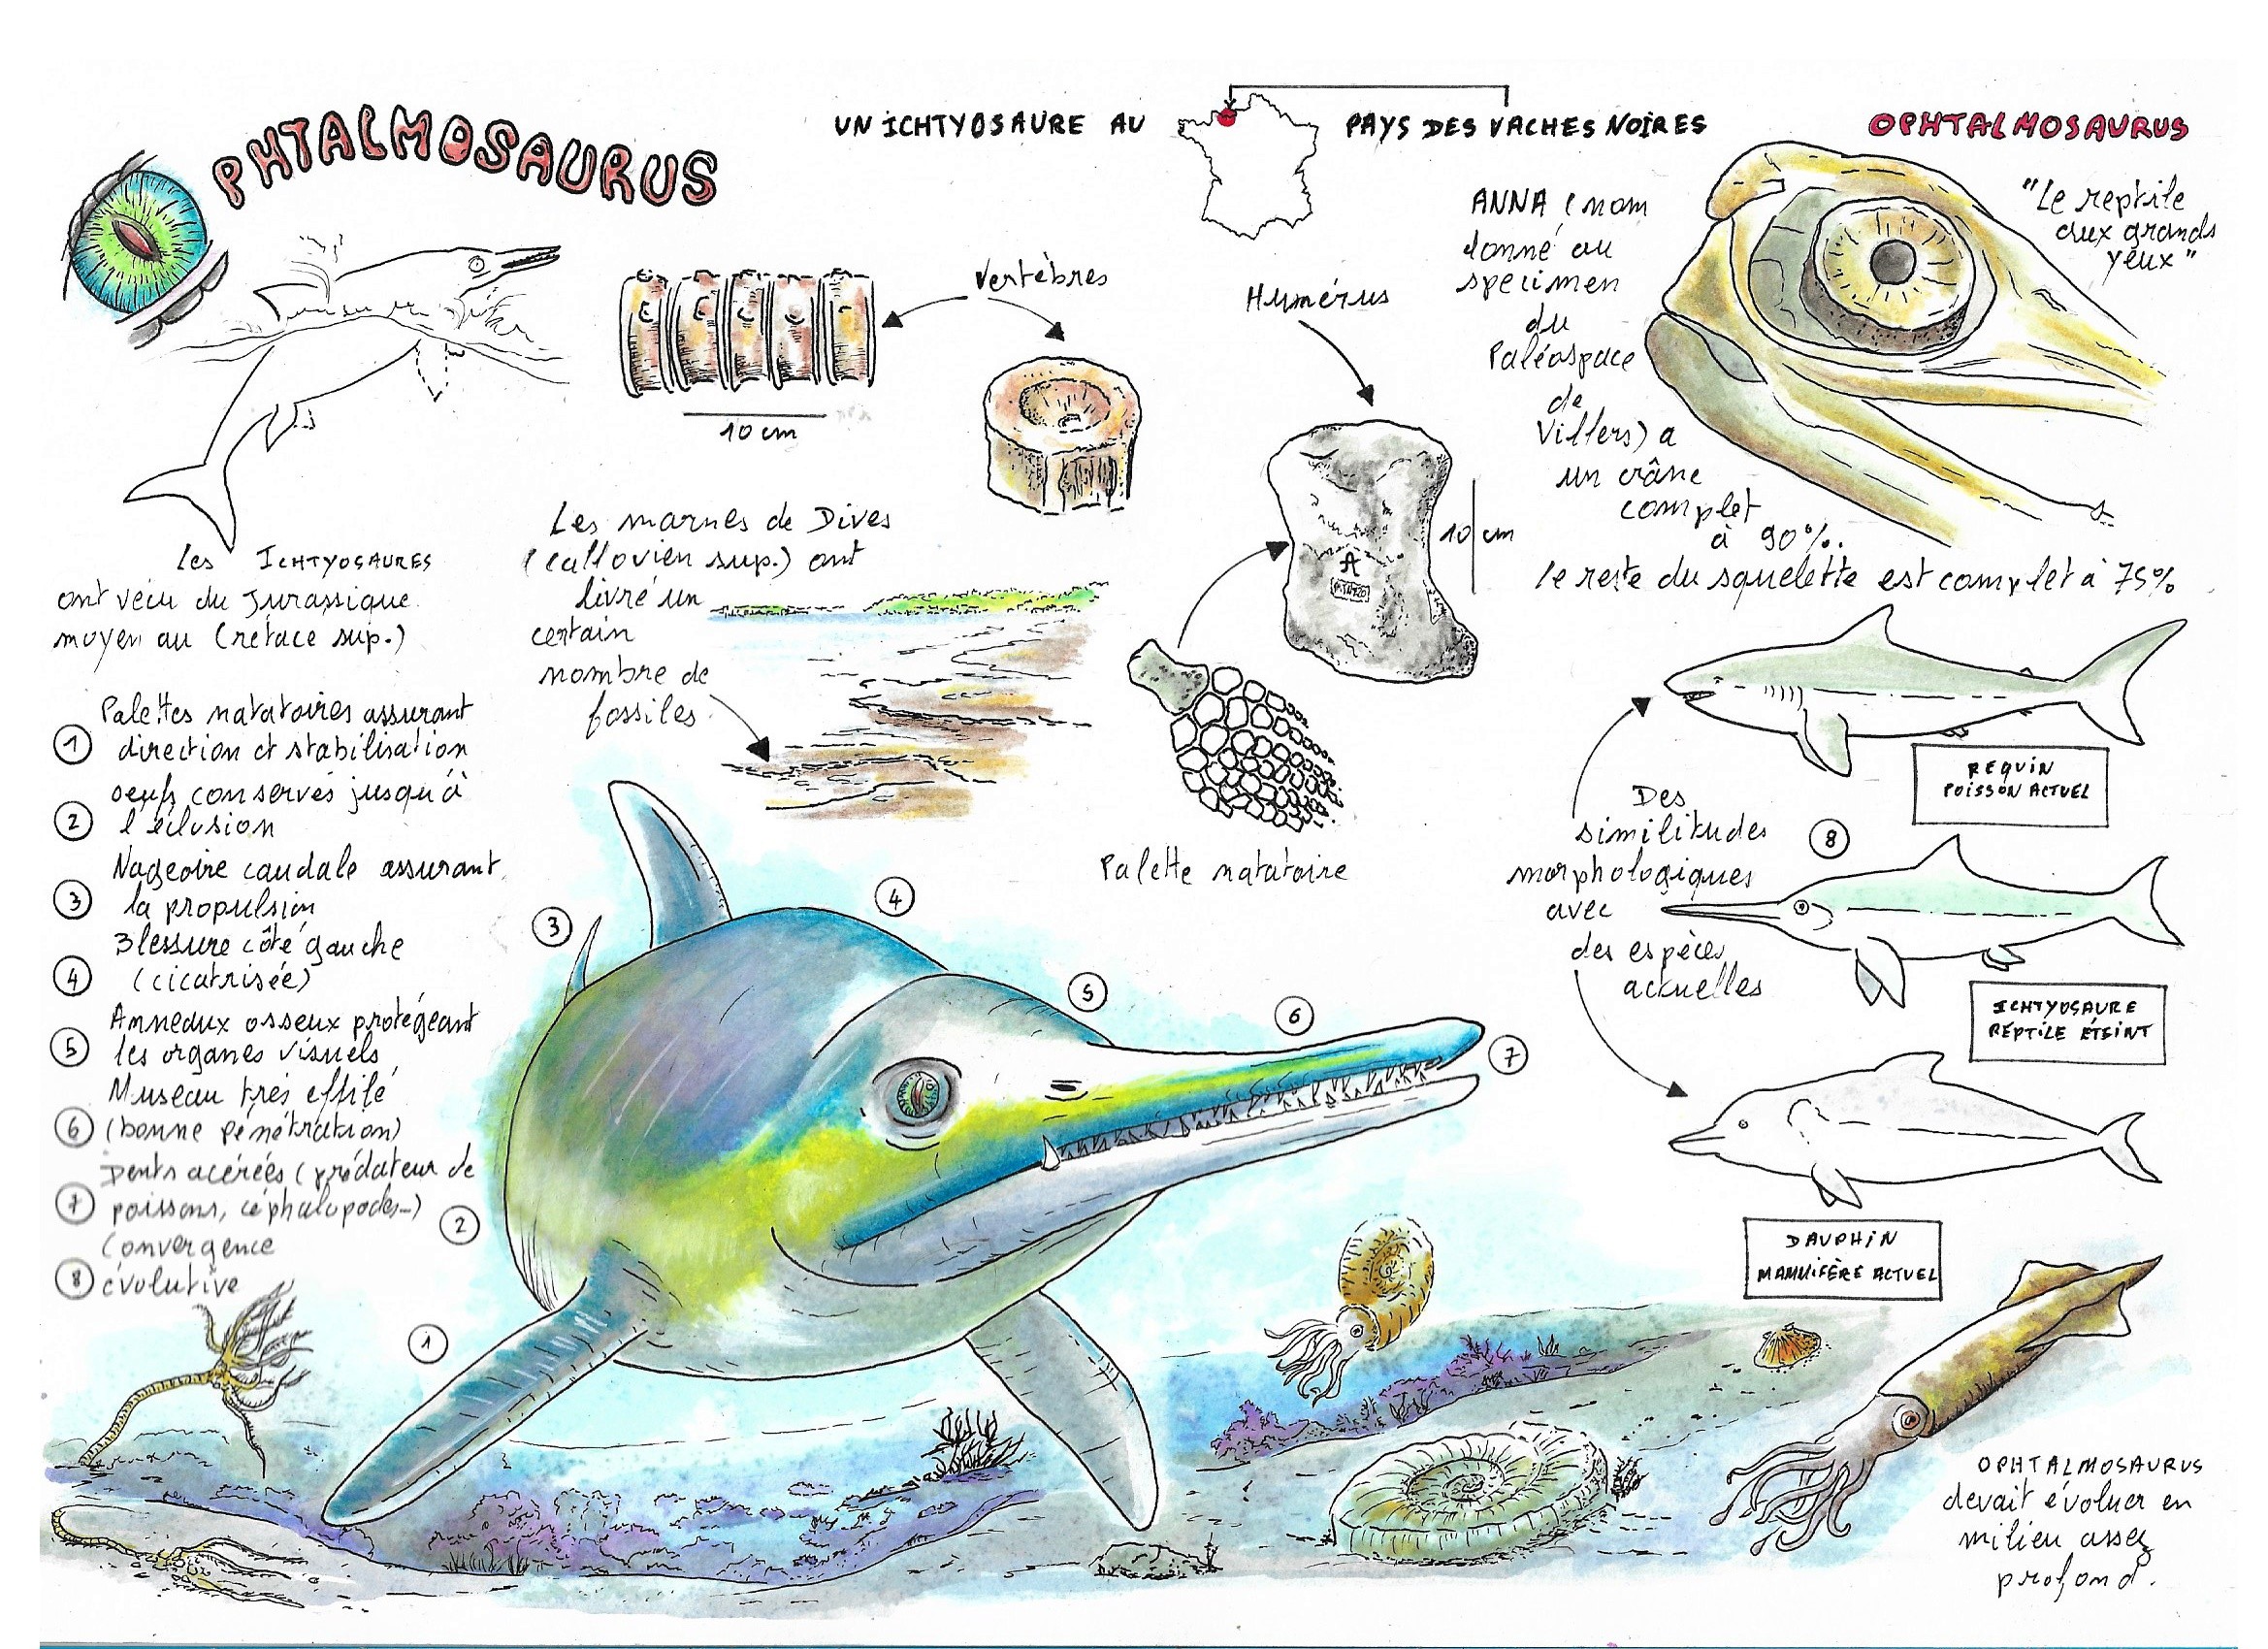 PHTALMOSAURUS
UN ICHTYOSAURE AU PAYS DES VACHES NOIRES
OPHTALMOSAURUS
"Le reptile
aux grands
yeux"
Vertèbres
10 cm
Humérus
10 cm
ANNA (nom
donné au
specimen
du
Paléospace
de
Villers) a
un crâne
complet
à 90%.
le reste du squelette est complet à 75%
Les ICHTYOSAURES
ont vécu du Jurassique
moyen au Crétacé sup.)
Les marnes de Dives
(callovien sup.) ont
livré un
certain
nombre de
fossiles.
Palette natatoire
Palettes natatoires assurant
1 direction et stabilisation
oeufs conservés jusqu'à
2 l'éclosion
Nageoire caudale assurant
3 la propulsion
Blessure côté gauche
4 (cicatrisée)
Anneaux osseux protégeant
5 les organes visuels
Museau très effilé
6 (bonne pénétration)
Dents acérées (prédateur de
7 poissons, céphalopodes-)
Convergence
8 évolutive
3
4
5
6
7
2
1
Des
similitudes
morphologiques
avec
des espèces
actuelles
REQUIN
POISSON ACTUEL
8
ICHTYOSAURE
REPTILE ÉTEINT
DAUPHIN
MAMMIFÈRE ACTUEL
OPHTALMOSAURUS
devait évoluer en
milieu assez
profond.